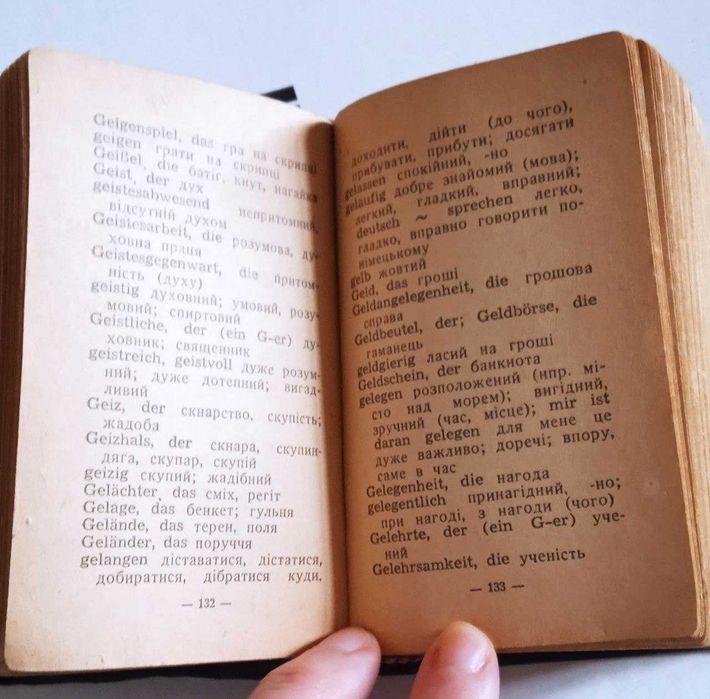 Geigenspiel, das гра на скрипці
geigen грати на скрипці
Geißel, die батіг, кнут, нагайка
Geist, der дух
geistesabwesend непритомний,
відсутній духом
Geistesarbeit, die розумова, ду-
ховна праця
Geistesgegenwart, die притом-
ність (духу)
geistig духовний; умовий, розу-
мовий; спиртовий
Geistliche, der (ein G-er) ду-
ховник; священник
geistreich, geistvoll дуже розум-
ний; дуже дотепний; вигад-
ливий
Geiz, der скнарство, скупість;
жадоба
Geizhals, der скнара, скупин-
дяга, скупар, скупій
geizig скупий; жадібний
Gelächter, das сміх, регіт
Gelage, das бенкет; гульня
Gelände, das терен, поля
Geländer, das поруччя
gelangen діставатися, дістатися,
добиратися, дібратися куди.
— 132 —
доходити, дійти (до чого),
прибувати, прибути; досягати
gelassen спокійний, -но
geläufig добре знайомий (мова);
легкий, гладкий, вправний;
deutsch ~ sprechen легко,
гладко, вправно говорити по-
німецькому
gelb жовтий
Geld, das гроші
Geldangelegenheit, die грошова
справа
Geldbeutel, der; Geldbörse, die
гаманець
geldgierig ласий на гроші
Geldschein, der банкнота
gelegen розположений (нпр. мі-
сто над морем); вигідний,
зручний (час, місце); mir ist
daran gelegen для мене це
дуже важливо; доречі; впору,
саме в час
Gelegenheit, die нагода
gelegentlich принагідний, -но;
при нагоді, з нагоди (чого)
Gelehrte, der (ein G-er) уче-
ний
Gelehrsamkeit, die ученість
— 133 —